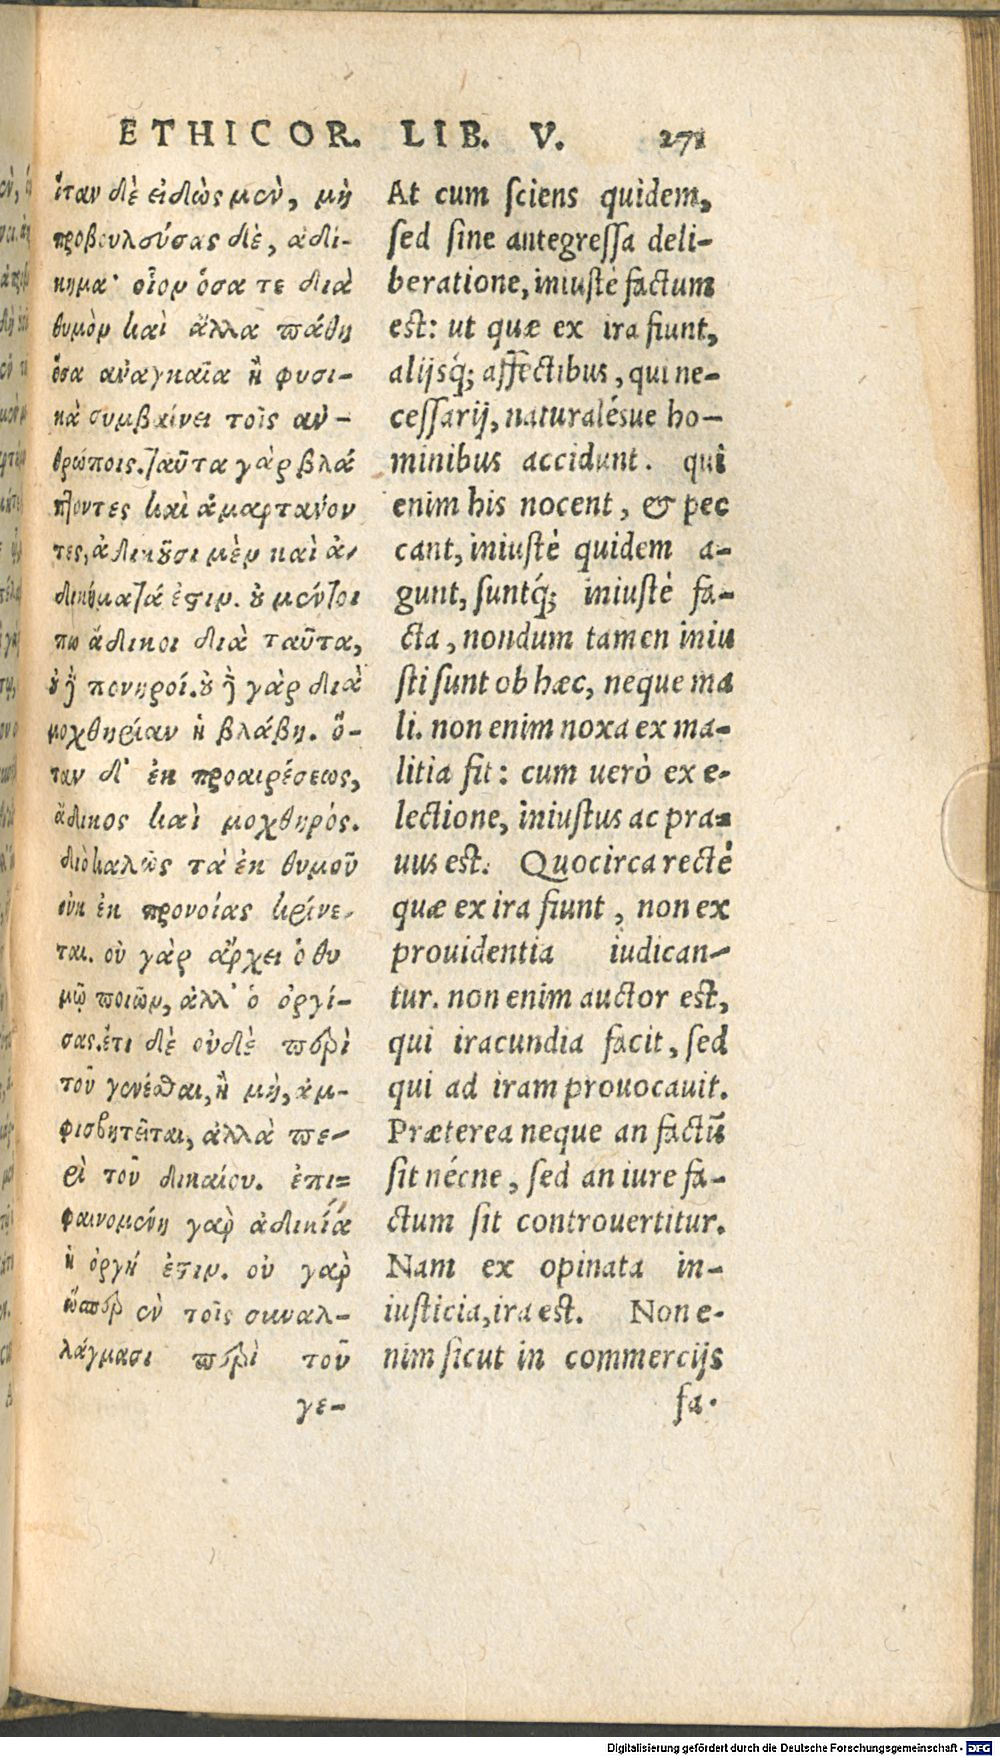 ETHICOR. LIB. V. 271
ὅταν δὲ εἰδὼς μὲν, μὴ
προβουλεύσας δὲ, ἀδί-
κημα· οἷον ὅσα τε διὰ
θυμὸν καὶ ἄλλα πάθη
ὅσα ἀναγκαῖα ἢ φυσι-
κὰ συμβαίνει τοῖς ἀν-
θρώποις. ταῦτα γὰρ βλά
πτοντες καὶ ἁμαρτάνον
τες, ἀδικοῦσι μὲν καὶ ἀ-
δικήματά ἐστιν. οὐ μέντοι
πω ἄδικοι διὰ ταῦτα,
οὐδὲ πονηροί. οὐ δὲ γὰρ διὰ
μοχθηρίαν ἡ βλάβη. ὅ-
ταν δ' ἐκ προαιρέσεως,
ἄδικος καὶ μοχθηρός.
διὸ καλῶς τὰ ἐκ θυμοῦ
οὐκ ἐκ προνοίας κρίνε-
ται. οὐ γὰρ ἄρχει ὁ θυ
μῷ ποιῶν, ἀλλ' ὁ ὀργί-
σας. ἔτι δὲ οὐδὲ περὶ
τοῦ γενέσθαι, ἢ μὴ, ἀμ-
φισβητεῖται, ἀλλὰ πε-
ρὶ τοῦ δικαίου. ἐπι=
φαινομένη γὰρ ἀδικίᾳ
ἡ ὀργή ἐστιν. οὐ γὰρ
ὥσπερ ἐν τοῖς συναλ-
λάγμασι περὶ τοῦ
γε-
At cum sciens quidem,
sed sine antegressa deli-
beratione, iniustè factum
est: ut quæ ex ira fiunt,
alijsq́; affectibus, qui ne-
cessarij, naturalésue ho-
minibus accidunt. qui
enim his nocent, & pec
cant, iniustè quidem a-
gunt, suntq́; iniustè fa-
cta, nondum tamen iniu
sti sunt ob hæc, neque ma
li. non enim noxa ex ma-
litia fit: cum uerò ex e-
lectione, iniustus ac pra=
uus est. Quocirca rectè
quæ ex ira fiunt, non ex
prouidentia iudican-
tur. non enim auctor est,
qui iracundia facit, sed
qui ad iram prouocauit.
Præterea neque an factū
sit nécne, sed an iure fa-
ctum sit controuertitur.
Nam ex opinata in-
iusticia, ira est. Non e-
nim sicut in commercijs
fa-
Digitalisierung gefördert durch die Deutsche Forschungsgemeinschaft - DFG